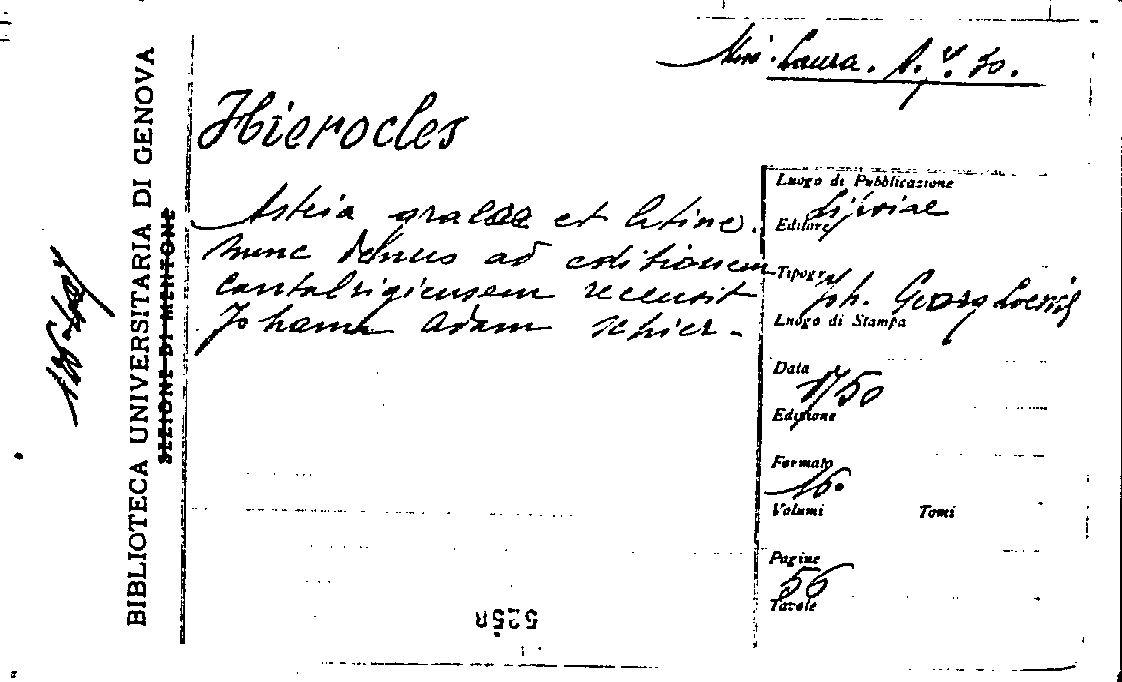 Laura.
Hierocles
Asteia graece et latine.
nunc denuo ad editionem
cantabrigiensem recensit
Johann Adam Schier -
Luogo di Pubblicazione
Lipsiae
Editore
Tipogra
Joh. Georg
Luogo di Stampa
Data
1750
Edizione
Formato
16.
Volumi Tomi
Pagine
56
Tavole
BIBLIOTECA UNIVERSITARIA DI GENOVA
SEZIONI DI MENTONE